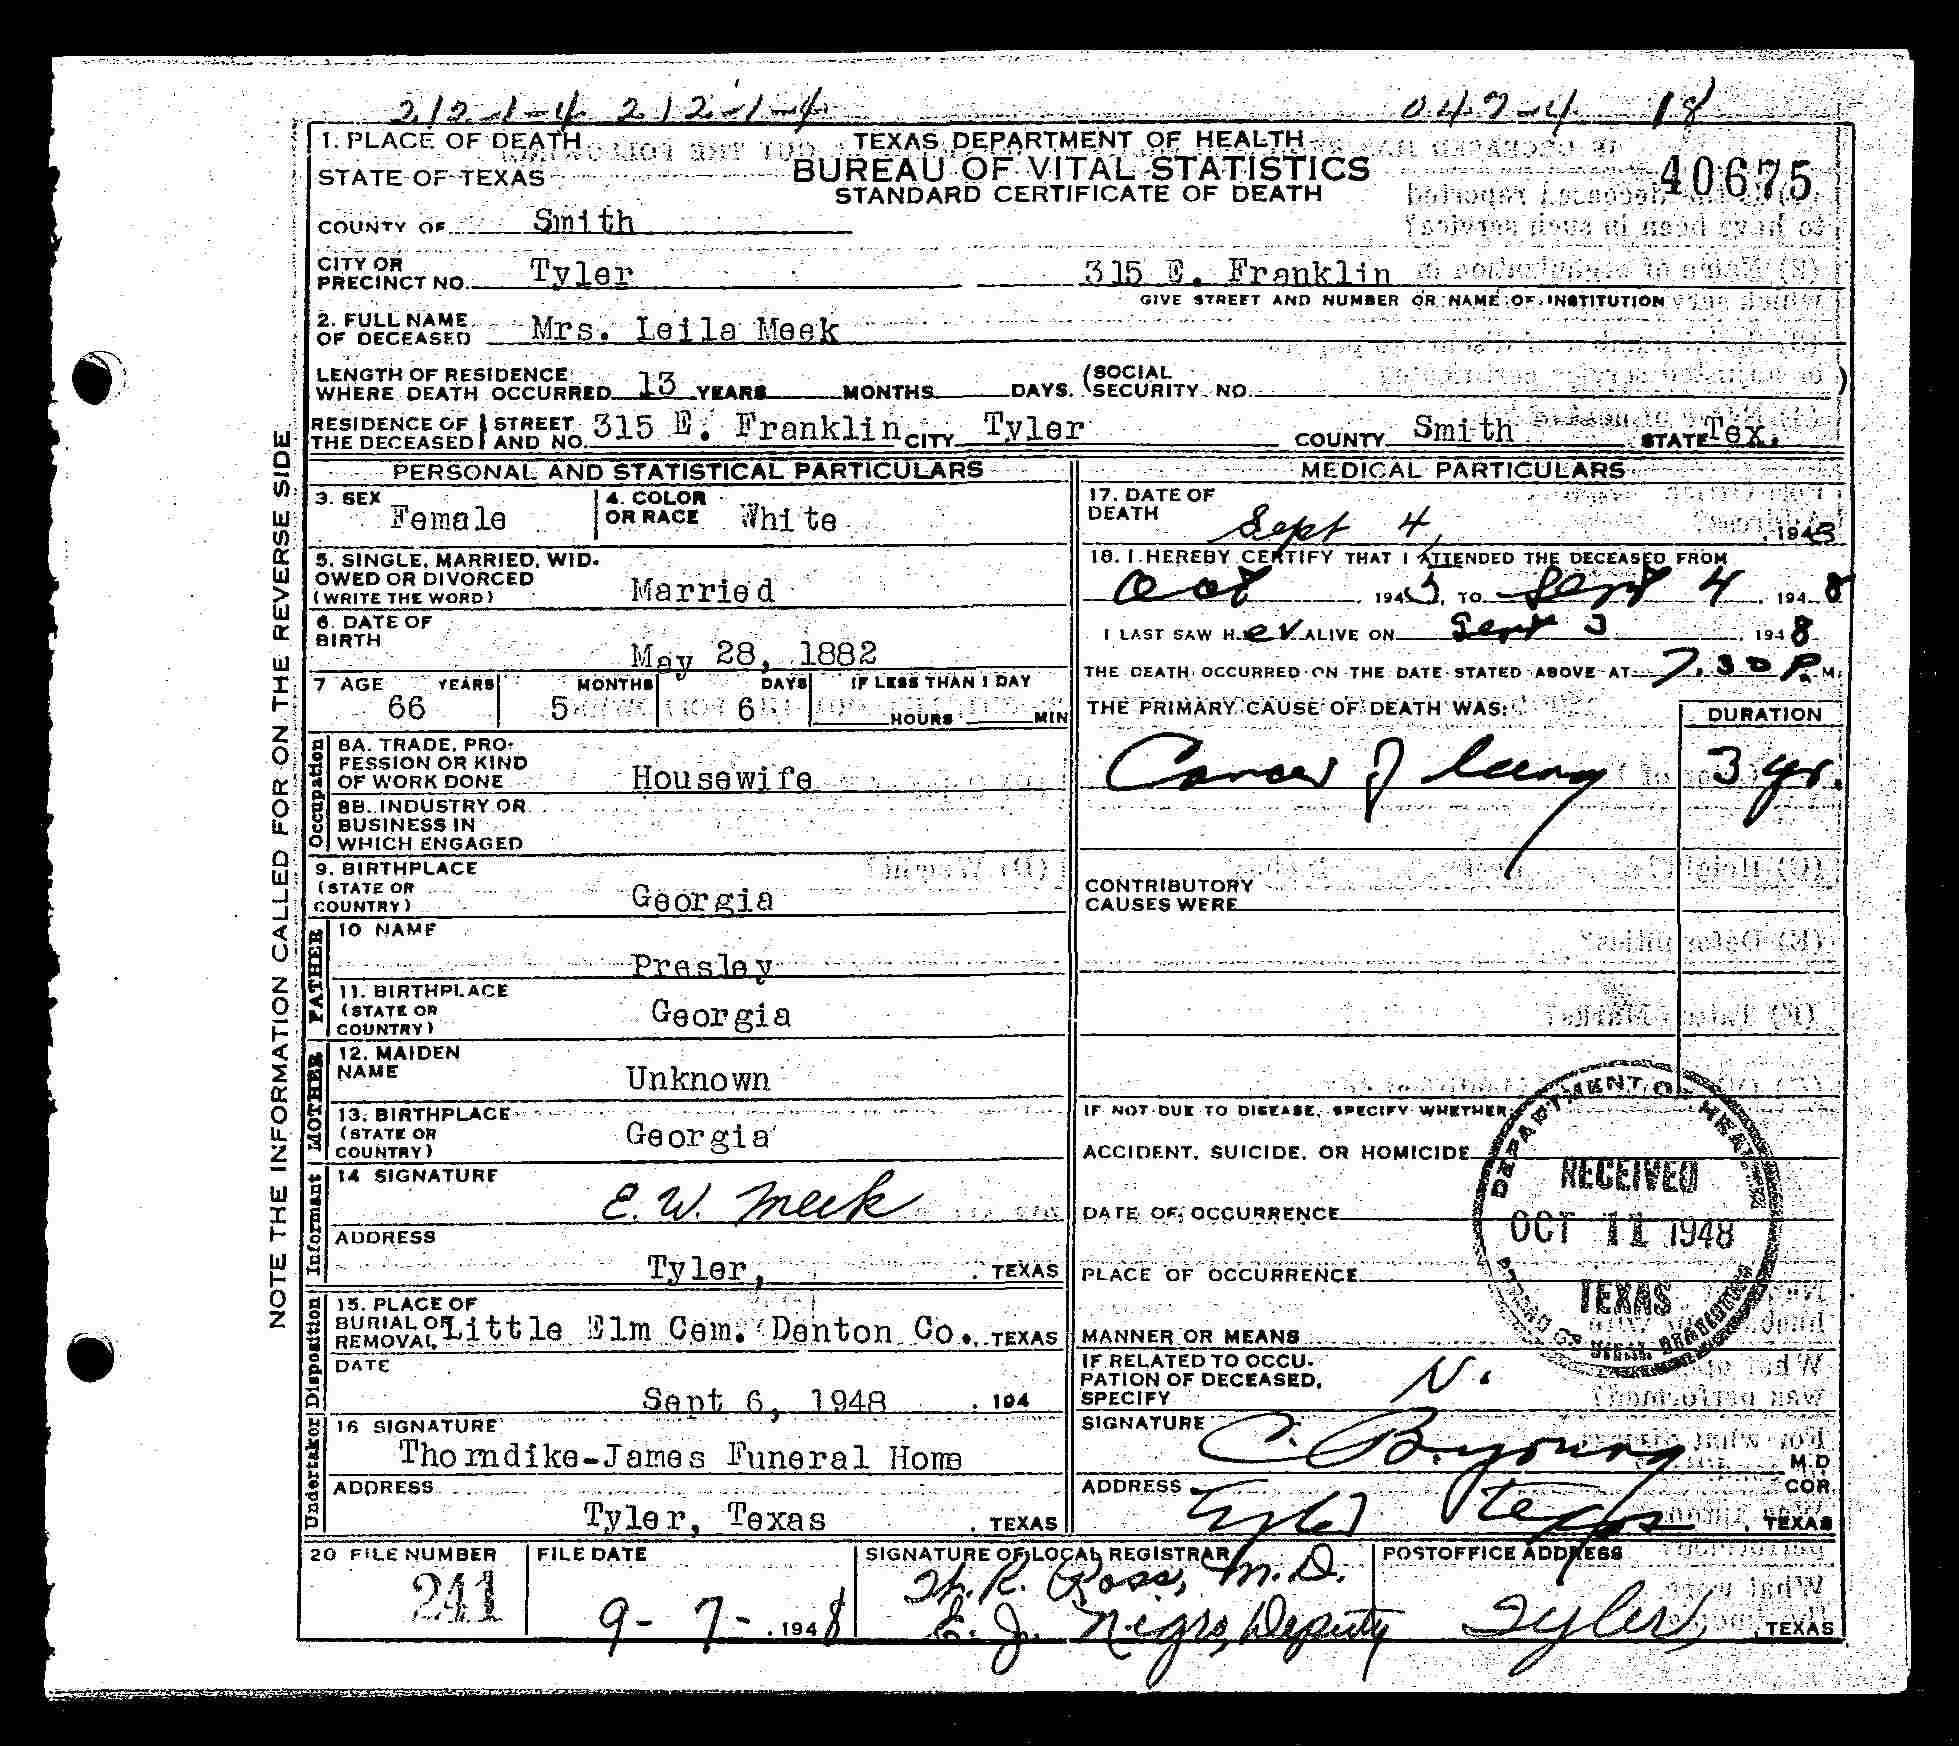 212-1-4 212-1-4 047-4 18
1. PLACE OF DEATH
STATE OF TEXAS
TEXAS DEPARTMENT OF HEALTH
BUREAU OF VITAL STATISTICS
STANDARD CERTIFICATE OF DEATH
40675
COUNTY OF Smith
CITY OR PRECINCT NO. Tyler 315 E. Franklin
GIVE STREET AND NUMBER OR NAME OF INSTITUTION
2. FULL NAME OF DECEASED Mrs. Leila Meek
LENGTH OF RESIDENCE WHERE DEATH OCCURRED 13 YEARS MONTHS DAYS. (SOCIAL SECURITY NO. )
RESIDENCE OF THE DECEASED STREET AND NO. 315 E. Franklin CITY Tyler COUNTY Smith STATE Tex.
NOTE THE INFORMATION CALLED FOR ON THE REVERSE SIDE
PERSONAL AND STATISTICAL PARTICULARS
3. SEX Female 4. COLOR OR RACE White
5. SINGLE, MARRIED, WIDOWED OR DIVORCED (WRITE THE WORD) Married
6. DATE OF BIRTH May 28, 1882
7 AGE YEARS MONTHS DAYS IF LESS THAN 1 DAY
66 5 6 HOURS MIN
Occupation
8A. TRADE, PROFESSION OR KIND OF WORK DONE Housewife
8B. INDUSTRY OR BUSINESS IN WHICH ENGAGED
9. BIRTHPLACE (STATE OR COUNTRY) Georgia
FATHER
10 NAME Presley
11. BIRTHPLACE (STATE OR COUNTRY) Georgia
MOTHER
12. MAIDEN NAME Unknown
13. BIRTHPLACE (STATE OR COUNTRY) Georgia
Informant
14 SIGNATURE E. W. Meek
ADDRESS Tyler, . TEXAS
Disposition
15. PLACE OF BURIAL OR REMOVAL Little Elm Cem. Denton Co. . TEXAS
DATE Sept 6, 1948 . 194
Undertaker
16 SIGNATURE Thorndike-James Funeral Home
ADDRESS Tyler, Texas . TEXAS
MEDICAL PARTICULARS
17. DATE OF DEATH Sept 4, , 1948
18. I HEREBY CERTIFY THAT I ATTENDED THE DECEASED FROM
Oct , 1945, TO Sept 4 , 1948
I LAST SAW H er ALIVE ON Sept 3 , 1948
THE DEATH OCCURRED ON THE DATE STATED ABOVE AT 7.30 P. M.
THE PRIMARY CAUSE OF DEATH WAS: DURATION
Cancer of lung 3 yr.
CONTRIBUTORY CAUSES WERE
IF NOT DUE TO DISEASE, SPECIFY WHETHER
ACCIDENT, SUICIDE, OR HOMICIDE
DATE OF OCCURRENCE
PLACE OF OCCURRENCE
MANNER OR MEANS
DEPARTMENT OF HEALTH
RECEIVED
OCT 11 1948
TEXAS
BUREAU OF VITAL STATISTICS
IF RELATED TO OCCUPATION OF DECEASED, SPECIFY N.
SIGNATURE C. B. Young M.D
ADDRESS Tyler Texas COR. , TEXAS
20 FILE NUMBER FILE DATE SIGNATURE OF LOCAL REGISTRAR POSTOFFICE ADDRESS
241 9-7-, 1948 R. Ross, M.D.
E. J. Nigro, Deputy Tyler , TEXAS